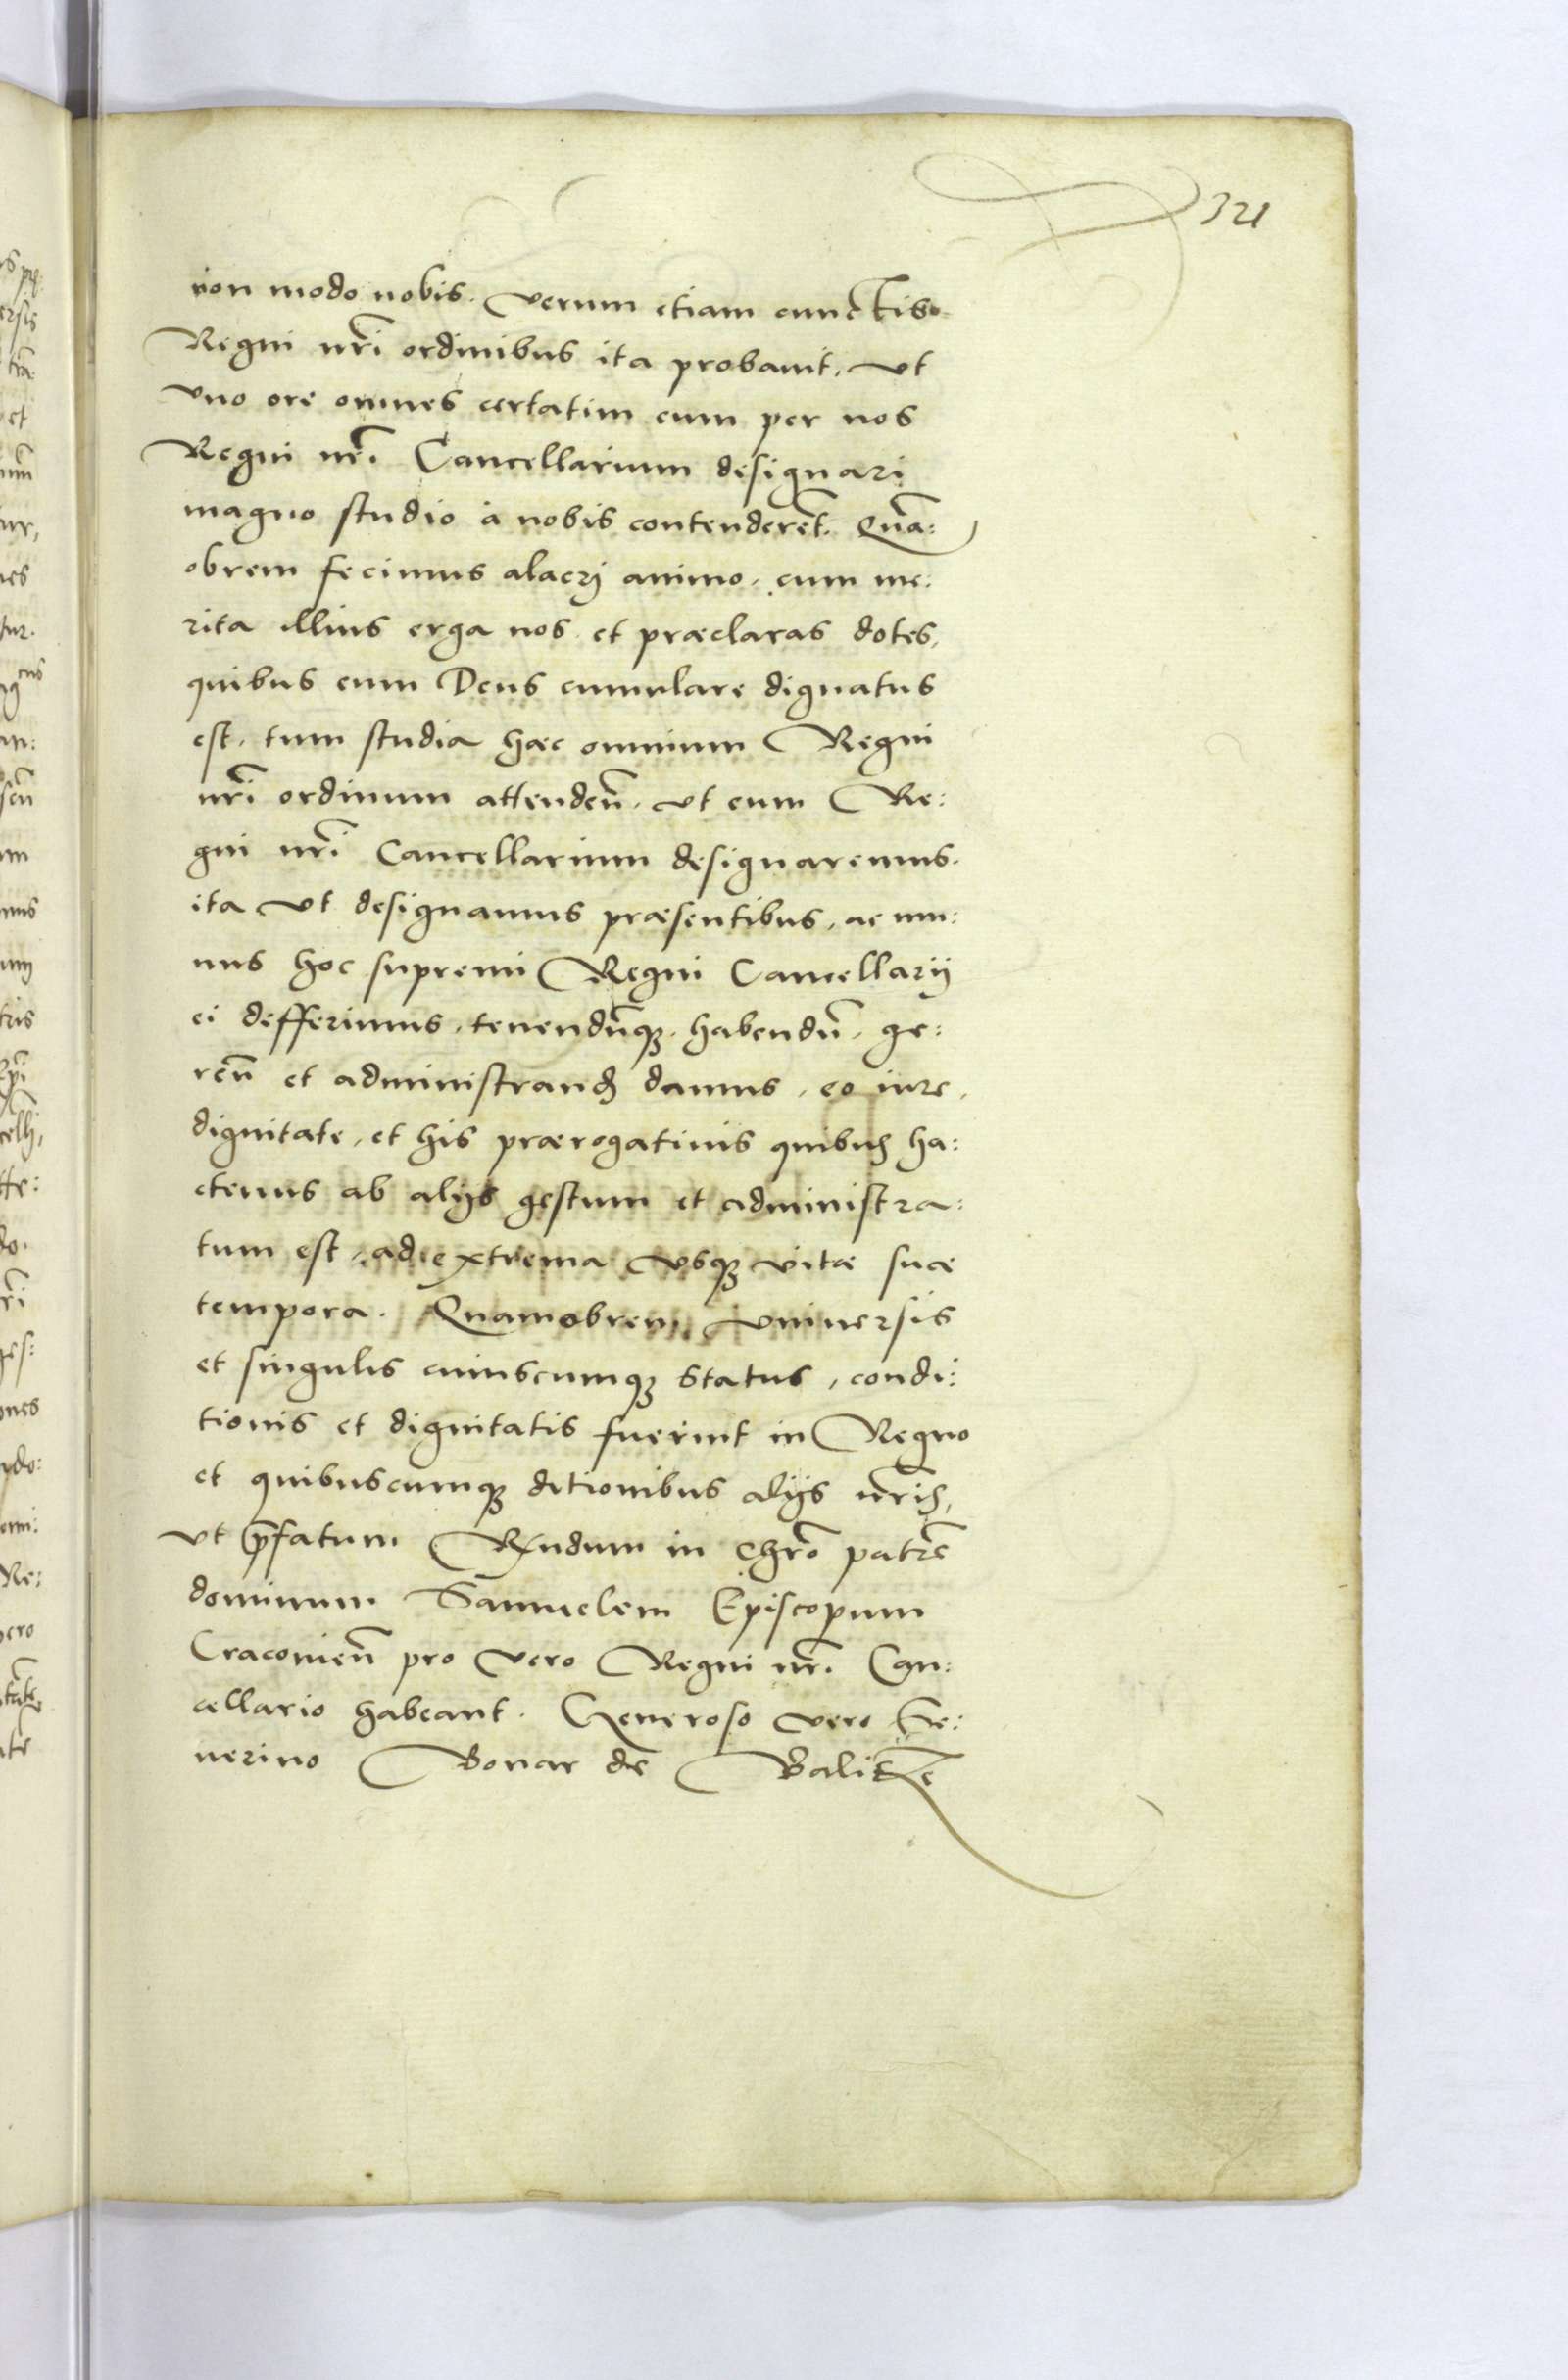 321
non modo nobis. verum etiam cunctis
Regni nr̃i ordinibus ita probauit, vt
vno ore omnes certatim eum per nos
Regni nr̃i Cancellarium designari
magno studio à nobis contenderẽt. Qua:
obrem fecimus alacri animo, cum me:
rita illius erga nos et præclaras dotes,
quibus eum Deus cumulare dignatus
est, tum studia hæc omnium Regni
nr̃i ordinum attendeñ, vt eum Re:
gni nr̃i Cancellarium designaremus.
ita vt designamus præsentibus, ac mu:
nus hoc supremi Regni Cancellarij
ei defferimus, tenendũq; habendũ, ge:
reñ et administrand damus, eo iure,
dignitate, et his prærogatiuis quibus ha:
ctenus ab alijs gestum et administra:
tum est, ad extrema vsq; vitæ suæ
tempora. Quamobrem vniuersis
et singulis cuiuscumq; status, condi:
tionis et dignitatis fuerint in Regno
et quibuscumq; ditionibus alijs nr̃is,
vt p̃fatum Rn̄dum in Chrõ patrẽ
dominum Samuelem Episcopum
Cracouieñ pro vero Regni nr̃i Can:
cellario habeant. Generoso vero Se:
uerino Bonar de Balicze